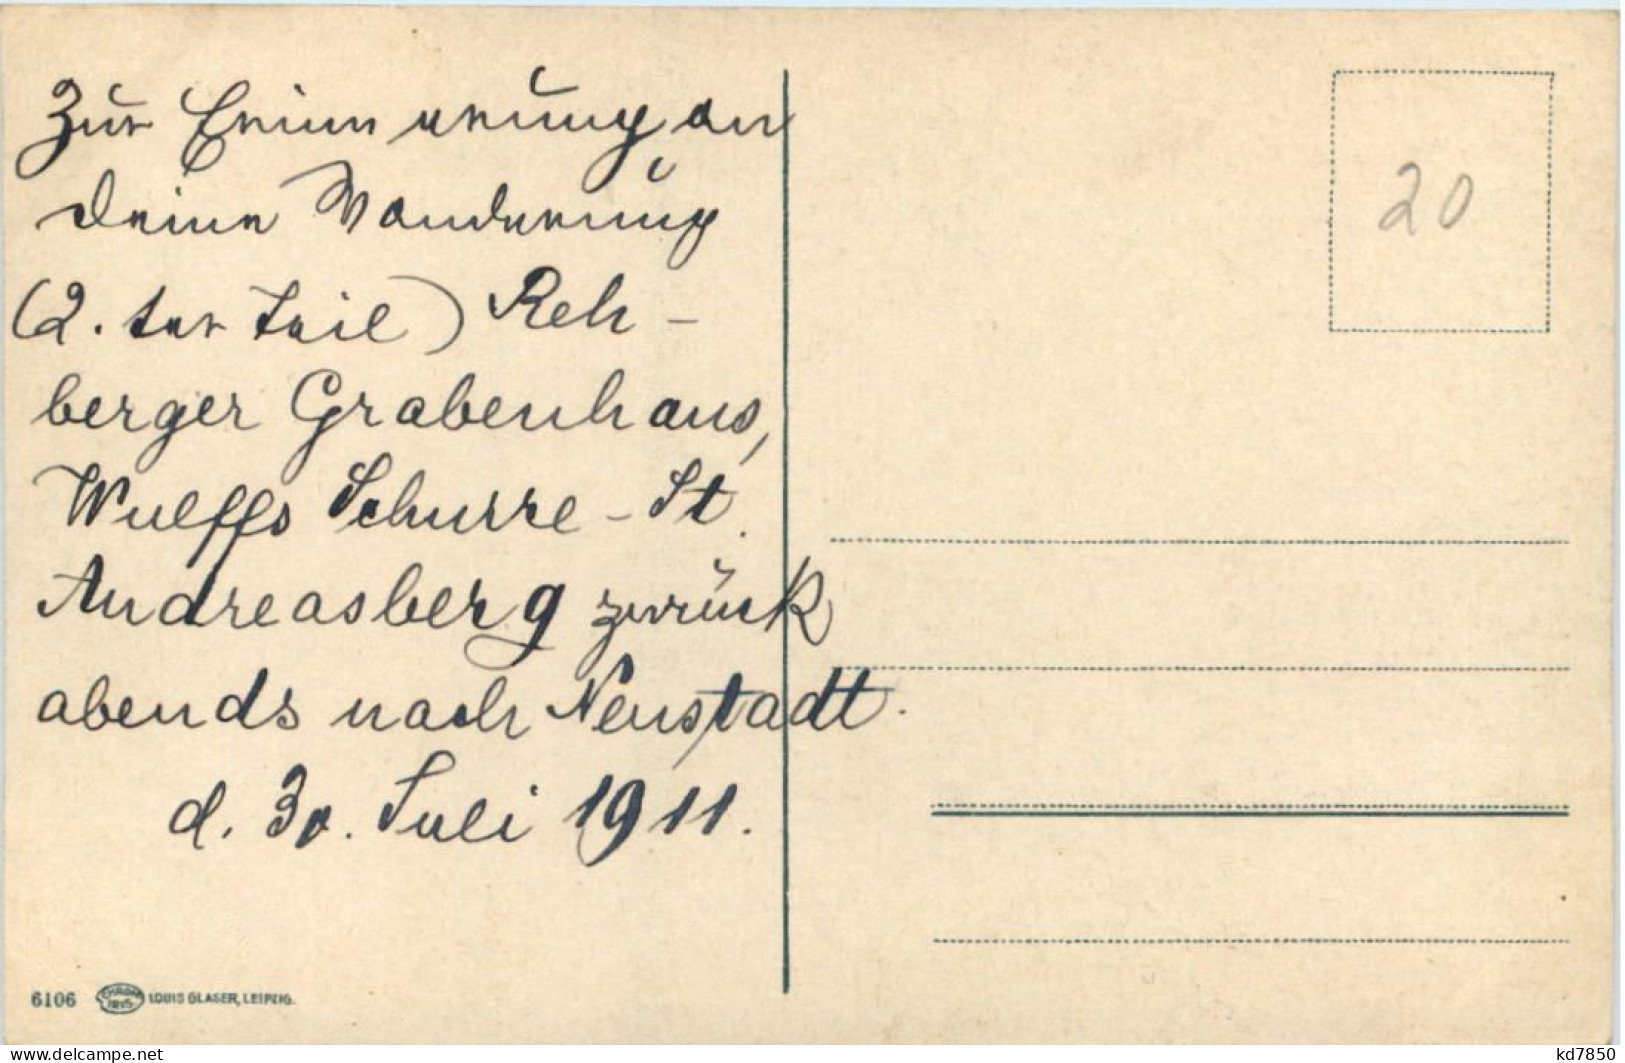 Zur Erinnerung an
Deine Wanderung
(2. ter Teil) Reh-
berger Grabenhaus,
Wulffs Schurre - St.
Andreasberg zurück
abends nach Neustadt.
d. 30. Juli 1911.
20
6106 LOUIS GLASER, LEIPZIG.
www.delcampe.net
kd7850